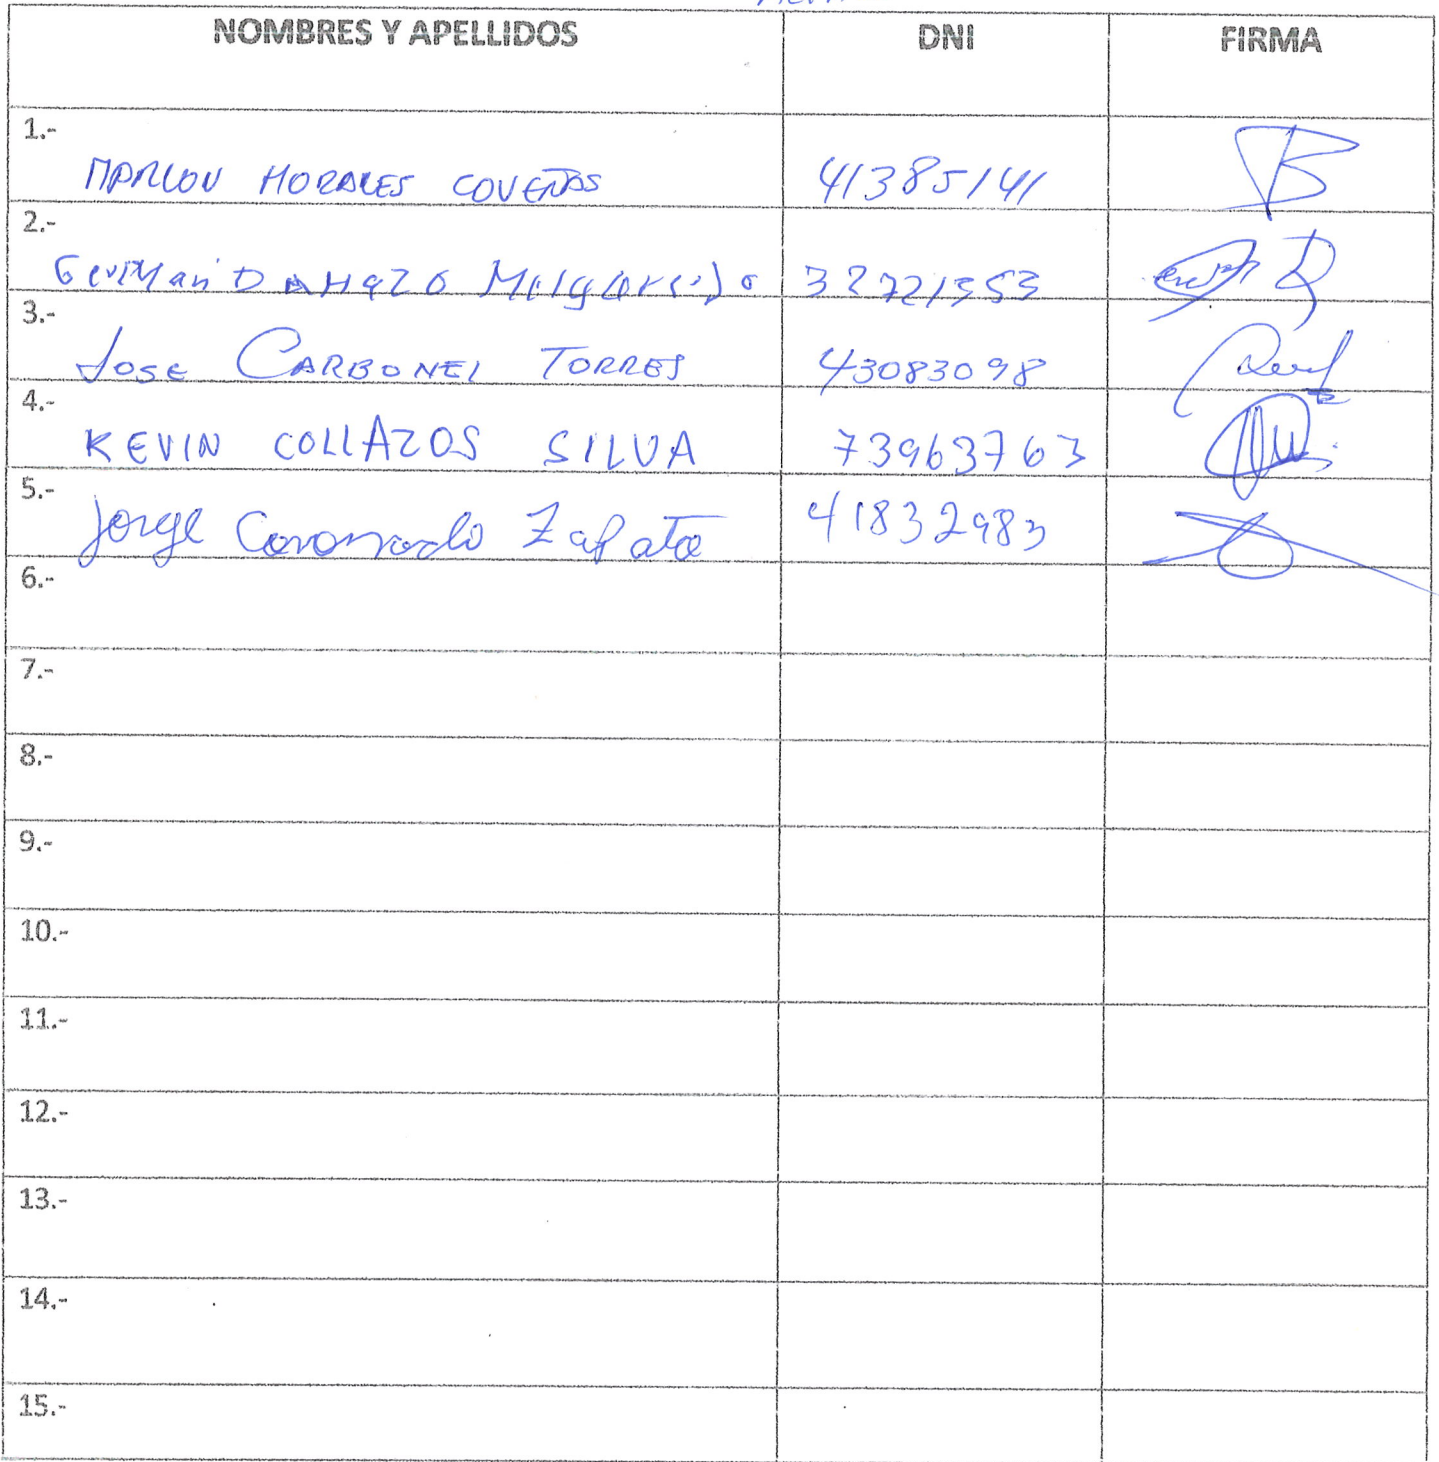 NOMBRES Y APELLIDOS DNI FIRMA
1.-
MARLON MORALES COVEÑAS 41385141
2.-
German DAMAZO Melgarejo 32721353
3.-
Jose CARBONEL TORRES 43083098
4.-
KEVIN COLLAZOS SILVA 73963763
5.-
Jorge Coronado Zapata 41832983
6.-
7.-
8.-
9.-
10.-
11.-
12.-
13.-
14.-
15.-